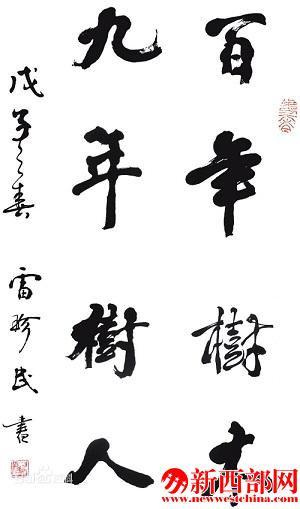 百年樹木
九年樹人
戊子之春 雷珍民 書
新西部网